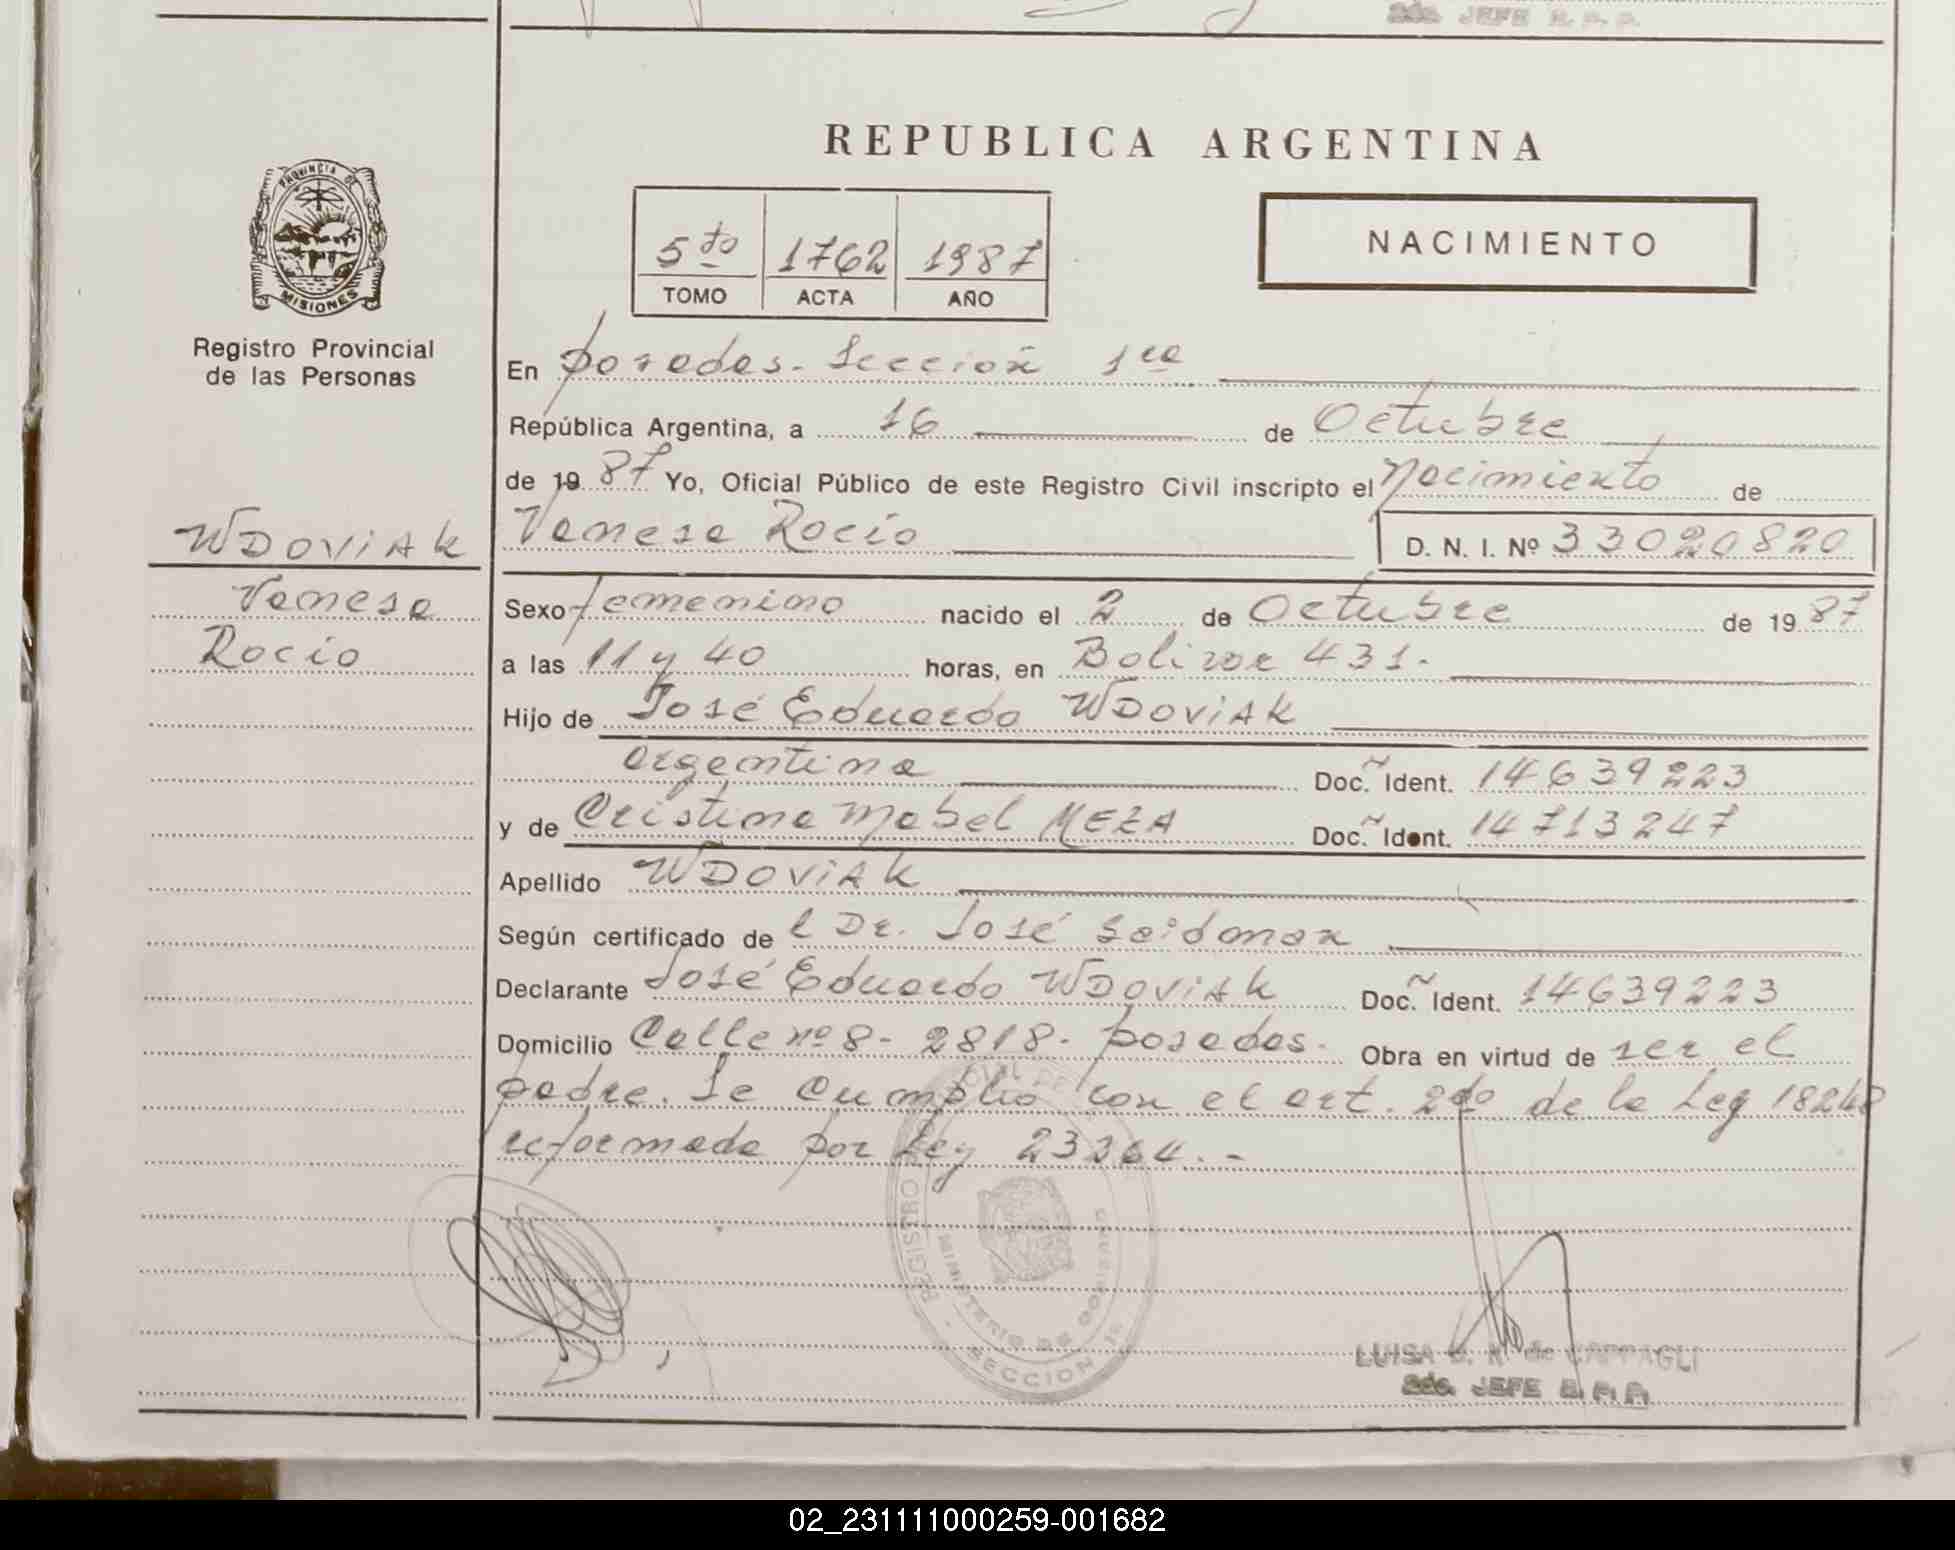 2do. JEFE R. P. P.
REPUBLICA ARGENTINA
PROVINCIA DE
MISIONES
Registro Provincial
de las Personas
5to 1762 1987
TOMO ACTA AÑO
NACIMIENTO
En Posadas - Sección 1ra
República Argentina, a 16 de Octubre
de 1987 Yo, Oficial Público de este Registro Civil inscripto el Nacimiento de
WDOVIAK
Vanesa Rocío D. N. I. Nº 33020820
Vanesa
Rocío
Sexo femenino nacido el 2 de Octubre de 1987
a las 11 y 40 horas, en Bolivar 431.
Hijo de José Eduardo WDOVIAK
argentina Doc. Ident. 14639223
y de Cristina Mabel MEZA Doc. Ident. 14713247
Apellido WDOVIAK
Según certificado de l Dr. José Seidman
Declarante José Eduardo WDOVIAK Doc. Ident. 14639223
Domicilio Calle nº 8 - 2818 - Posadas. Obra en virtud de ser el
padre. Se cumplió con el art. 2do de la Ley 18248
reformada por Ley 23264. -
REGISTRO
MINISTERIO DE GOBIERNO
SECCION 1ª
LUISA de CAPPAGLI
2do. JEFE R. P. P.
02_231111000259-001682